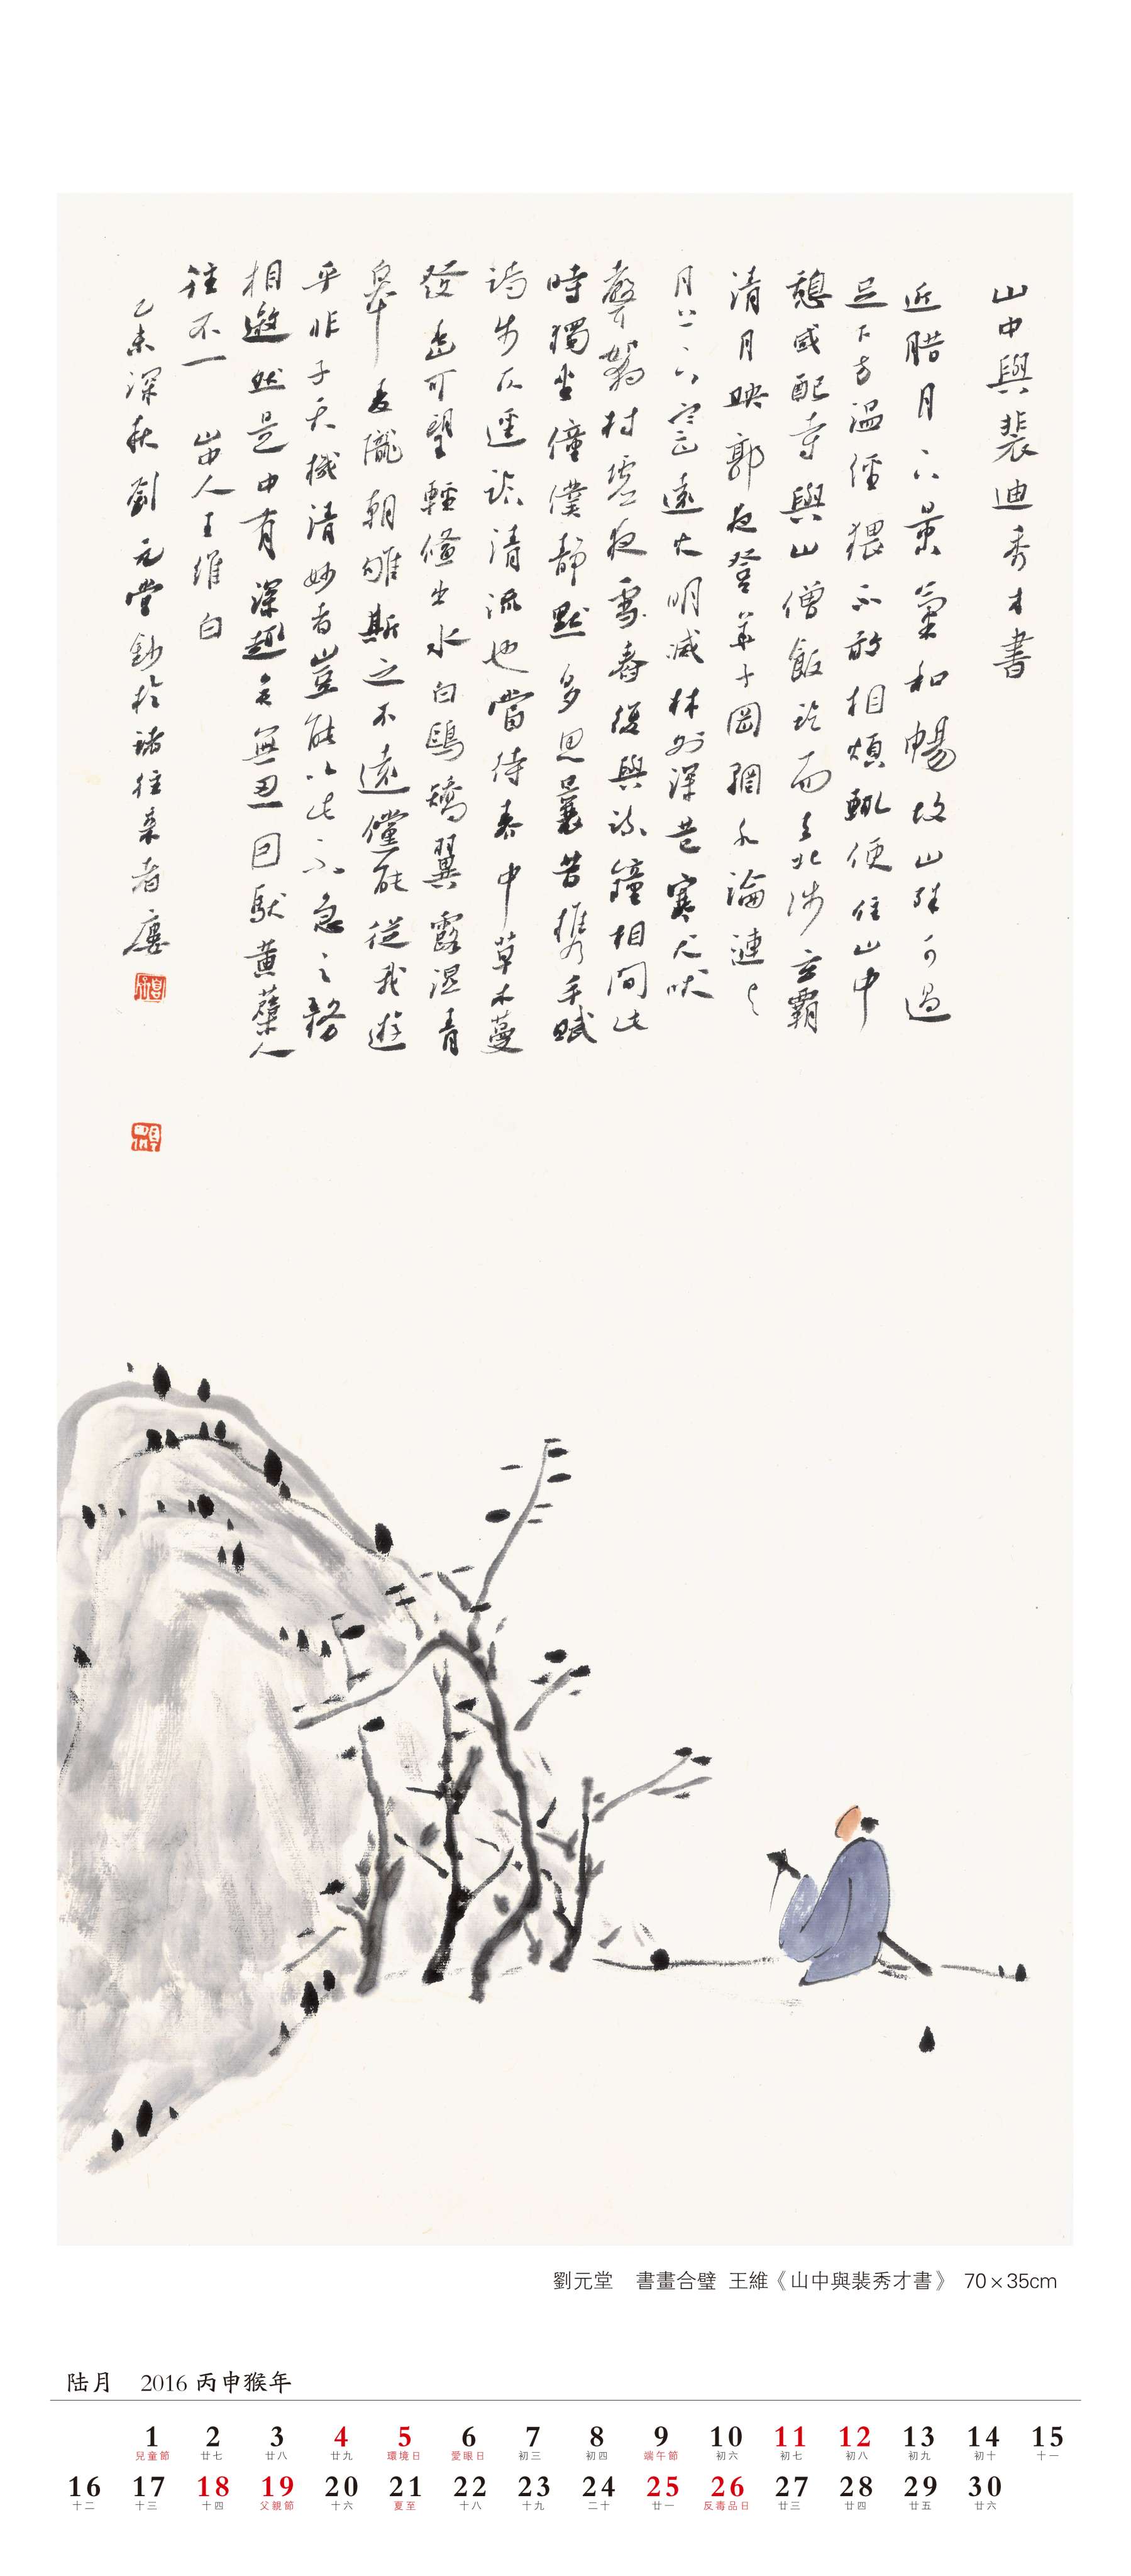 山中與裴迪秀才書
近腊月下景氣和暢故山殊可過
足下方溫經猥不敢相煩輒便往山中
憩感配寺與山僧飯訖而去北涉玄霸
清月映郭夜登華子岡輞水淪漣与
月上下寒山遠火明滅林外深巷寒犬吠
聲如豹村墟夜舂復與疏鐘相間此
時獨坐僮僕靜默多思曩昔携手賦
詩步仄逕臨清流也當待春中草木蔓
發春山可望輕鯈出水白鷗矯翼露濕青
皋麥隴朝雊斯之不遠儻能從我遊
乎非子天機清妙者豈能以此不急之務
相邀然是中有深趣矣無忽因馱黃蘗人
往不一 山中人王維白
乙未深秋劉元堂鈔於諸往來者廔
劉元堂 書畫合璧 王維《山中與裴秀才書》 70×35cm
陆月 2016 丙申猴年
1 2 3 4 5 6 7 8 9 10 11 12 13 14 15
兒童節 廿七 廿八 廿九 環境日 愛眼日 初三 初四 端午節 初六 初七 初八 初九 初十 十一
16 17 18 19 20 21 22 23 24 25 26 27 28 29 30
十二 十三 十四 父親節 十六 夏至 十八 十九 二十 廿一 反毒品日 廿三 廿四 廿五 廿六